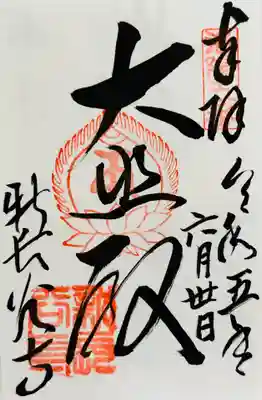 奉拝
令和五年
六月卅日
大悲殿
新長谷寺